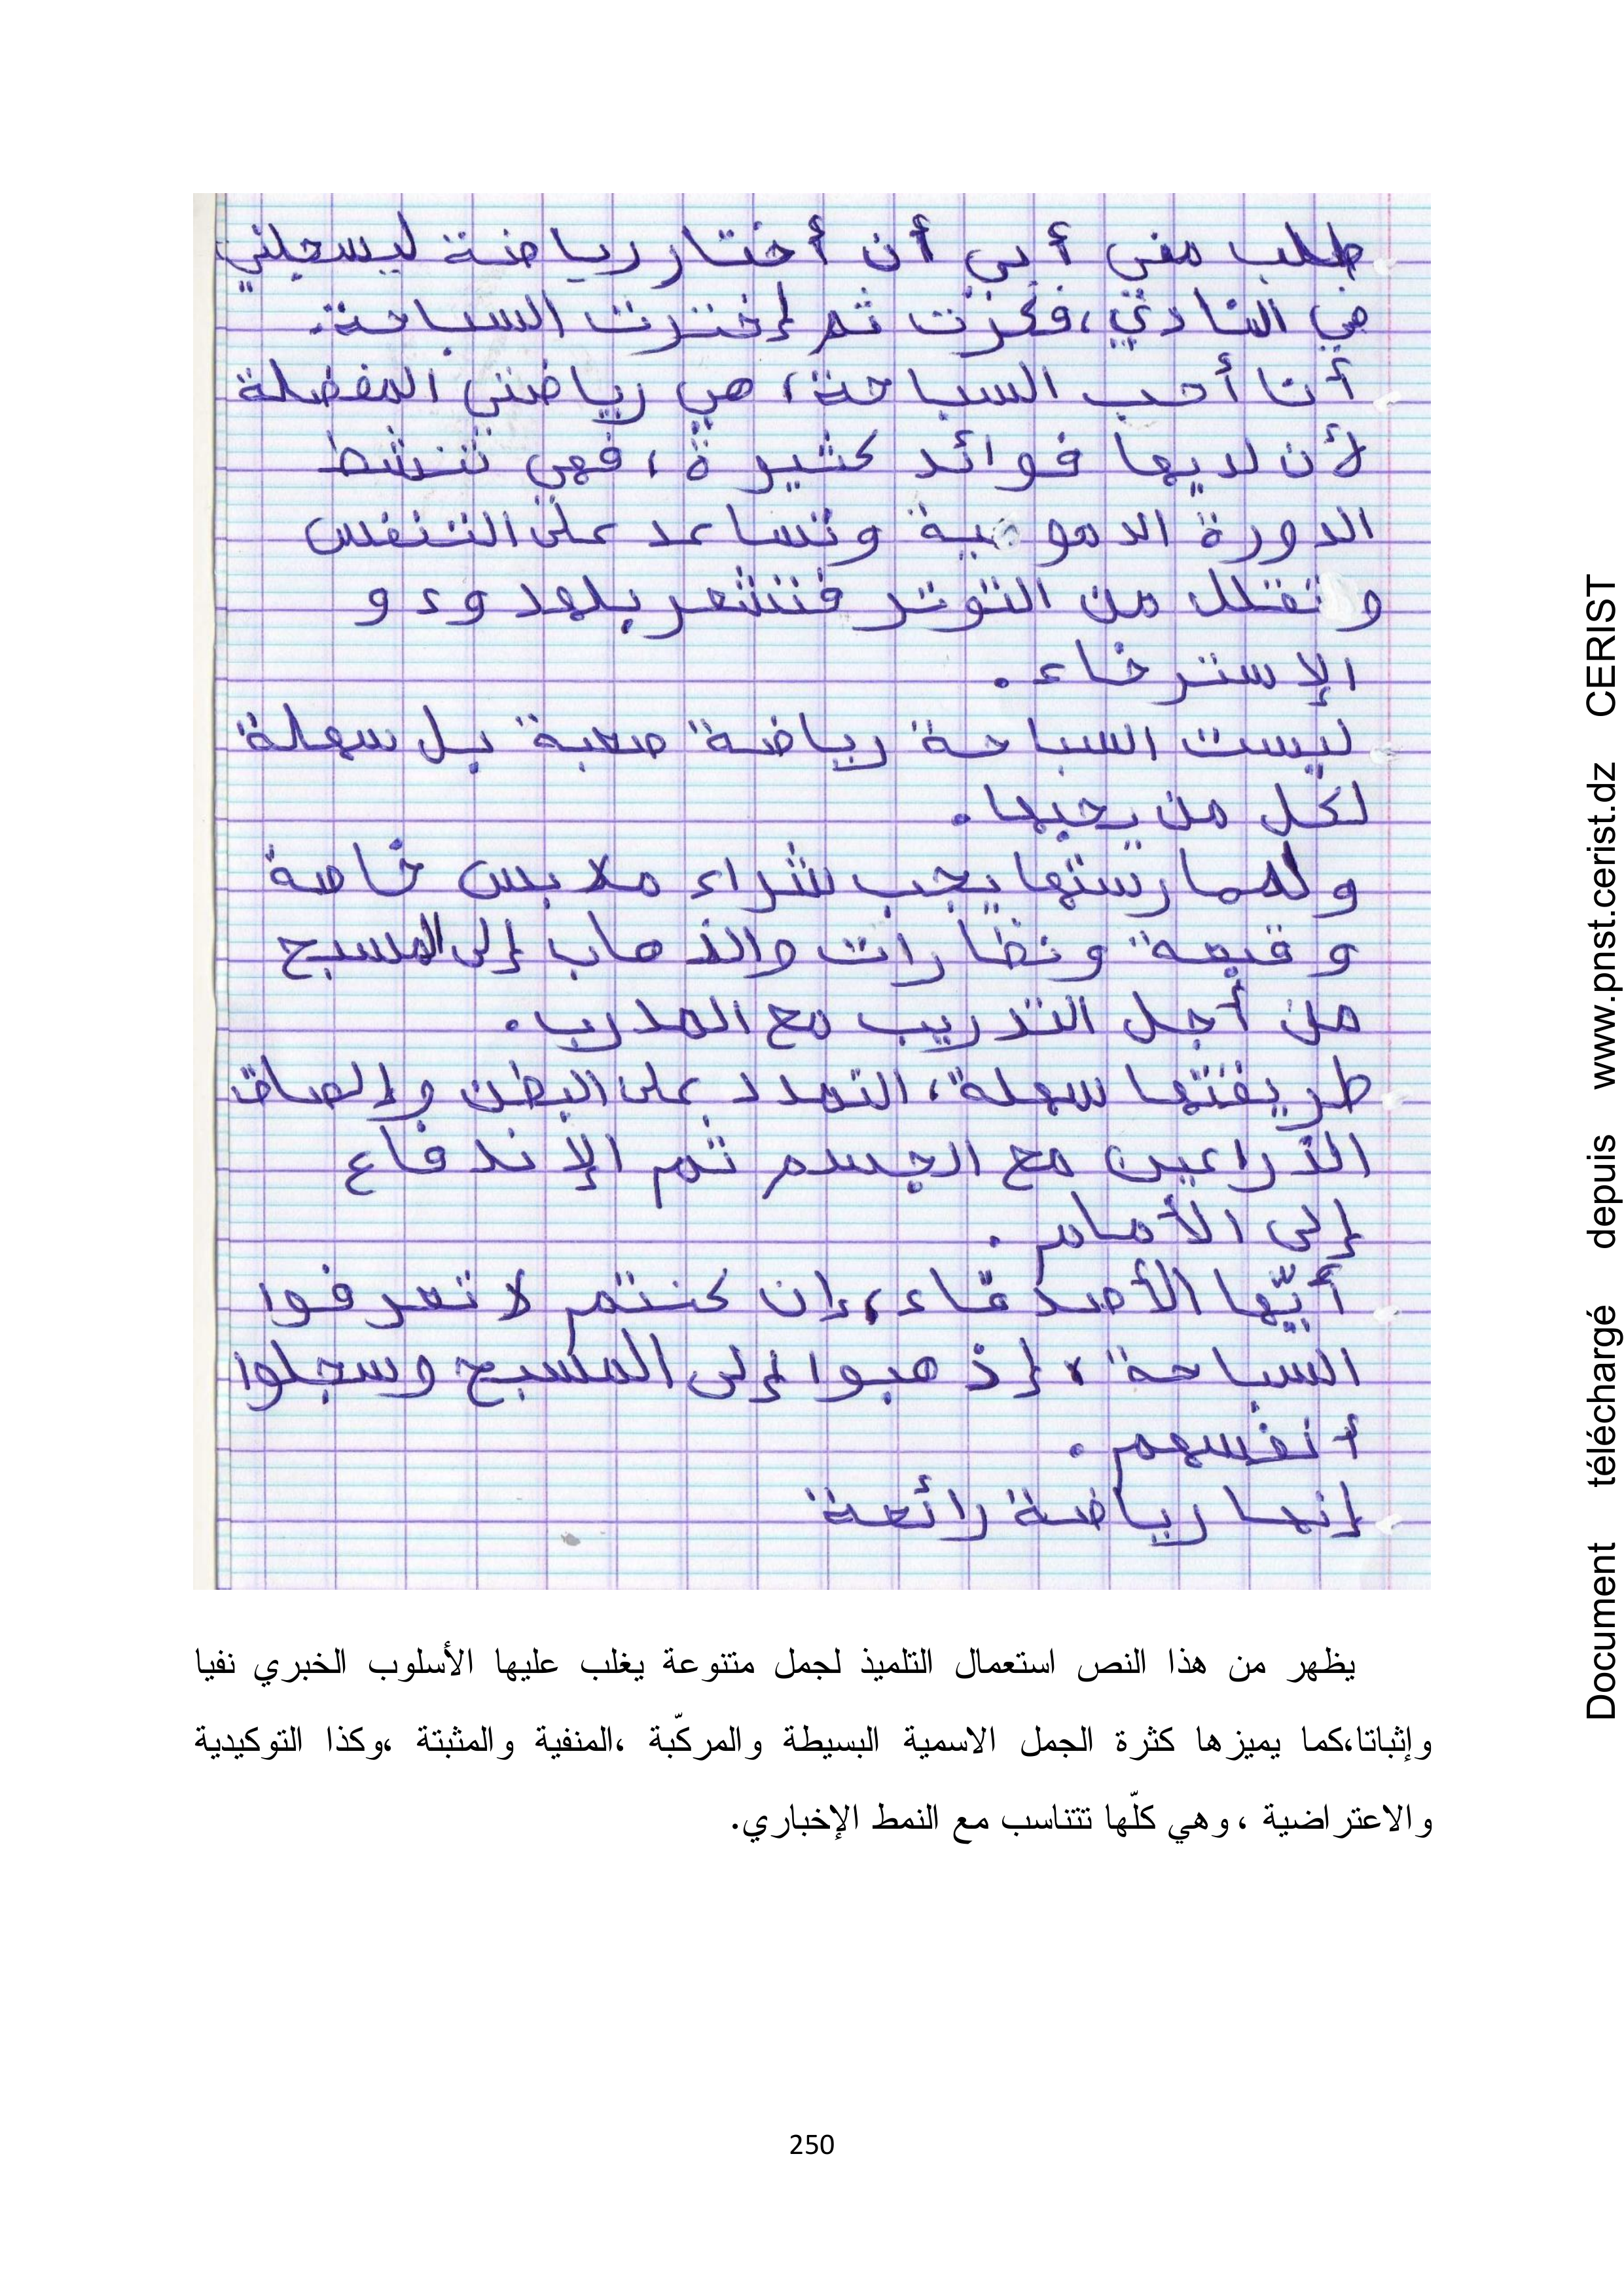 طلب مني أبي أن أختار رياضة ليسجلني
في النادي، فكرت ثم إخترت السباحة.
أنا أحب السباحة، هي رياضتي المفضلة
لأن لديها فوائد كثيرة، فهي تنشط
الدورة الدموية وتساعد على التنفس
وتقلل من التوتر فتشعر بلهدوء و
الإسترخاء.
ليست السباحة رياضة صعبة بل سهلة
لكل من يحبها.
ولممارستها يجب شراء ملابس خاصة
و قبعة ونظارات والذهاب إلى المسبح
من أجل التدريب مع المدرب.
طريقتها سهلة، التمدد على البطن وإلصاق
الذراعين مع الجسم ثم الإندفاع
إلى الأمام.
أيّها الأصدقاء، إن كنتم لا تعرفوا
السباحة، إذهبوا إلى المسبح وسجلوا
أنفسهم.
إنها رياضة رائعة
يظهر من هذا النص استعمال التلميذ لجمل متنوعة يغلب عليها الأسلوب الخبري نفيا
وإثباتا،كما يميزها كثرة الجمل الاسمية البسيطة والمركّبة ،المنفية والمثبتة ،وكذا التوكيدية
والاعتراضية ، وهي كلّها تتناسب مع النمط الإخباري.
250
Document téléchargé depuis www.pnst.cerist.dz CERIST